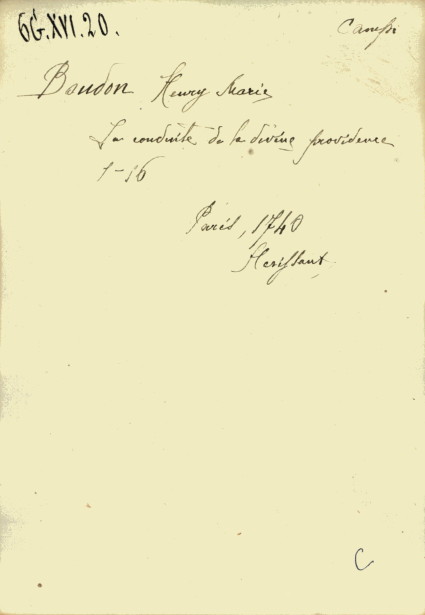 6G.XVI.20.
Campi
Boudon Henry Marie
La conduite de la divine providence
1-16
Paris, 1740
Herissant
C